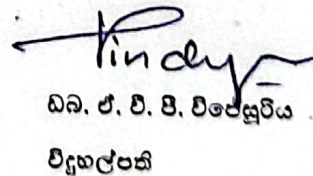 ඩබ්. ඒ. වී. පී. විජේසූරිය
විදුහල්පති